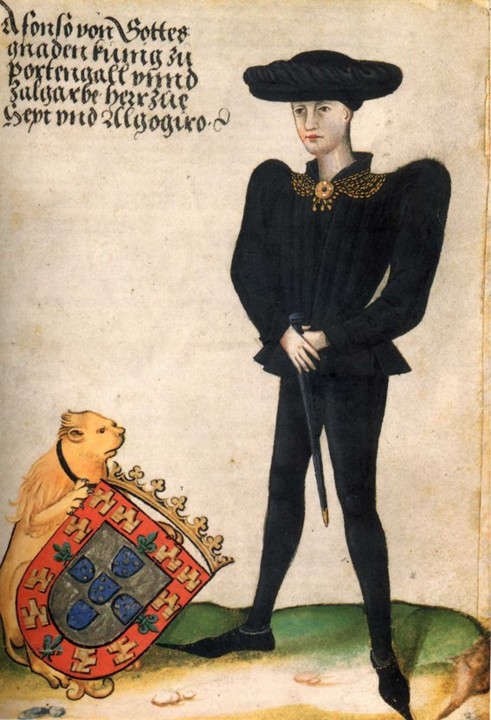 Afonso von Gottes
gnaden kunig zu
portengall vnnd
zalgarbe herr zue
Sept vnd Algogiro.